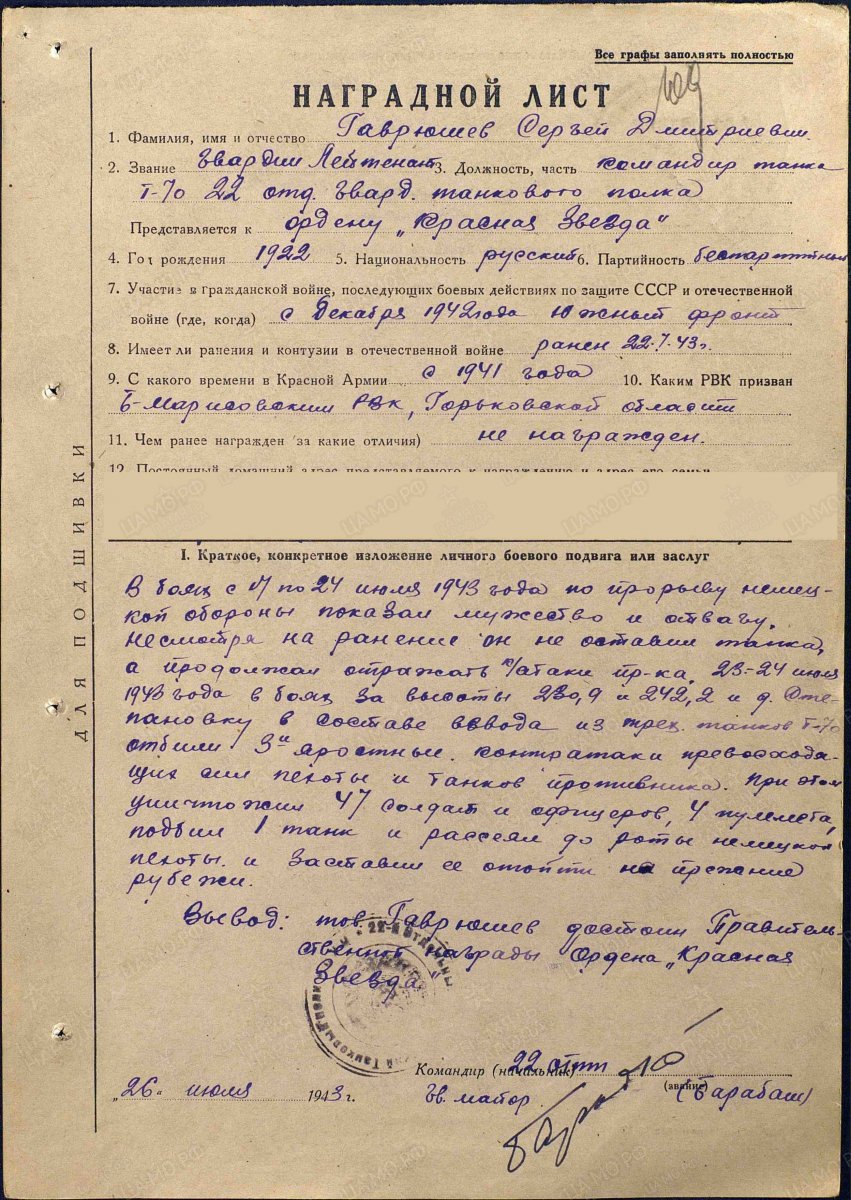 Все графы заполнять полностью
НАГРАДНОЙ ЛИСТ
1. Фамилия, имя и отчество Гаврюшев Сергей Дмитриевич
2. Звание Гвардии Лейтенант 3. Должность, часть командир танка
Т-70 22 отд. Гвард. танкового полка
Представляется к ордену „Красная Звезда"
4. Год рождения 1922 5. Национальность русский 6. Партийность беспартийный
7. Участие в гражданской войне, последующих боевых действиях по защите СССР и отечественной
войне (где, когда) с Декабря 1942 года Южный фронт
8. Имеет ли ранения и контузии в отечественной войне ранен 22.7.43г.
9. С какого времени в Красной Армии с 1941 года 10. Каким РВК призван
Б-Марисовским РВК, Горьковской области
11. Чем ранее награжден (за какие отличия) не награжден.
12. Постоянный домашний адрес представляемого к награждению и адрес его семьи
ДЛЯ ПОДШИВКИ
I. Краткое, конкретное изложение личного боевого подвига или заслуг
В боях с 17 по 24 июля 1943 года по прорыву немец-
кой обороны показал мужество и отвагу.
Несмотря на ранение он не оставил танка,
а продолжал отражать к/атаки пр-ка. 23-24 июля
1943 года в боях за высоты 230,9 и 242,2 и д. Сте-
пановку в составе взвода из трех танков Т-70
отбили 3и яростные контратаки превосходя-
щих сил пехоты и танков противника. При этом
уничтожил 47 солдат и офицеров, 4 пулемета,
подбил 1 танк и рассеял до роты немецкой
пехоты и заставил ее отойти на прежние
рубежи.
Вывод: тов. Гаврюшев достоин Правитель-
ственной награды Ордена „Красная
Звезда"
Командир (начальник) 22 отп
(звание)
„26" июля 1943 г. гв. майор (Барабаш)
ЦАМО.РФ